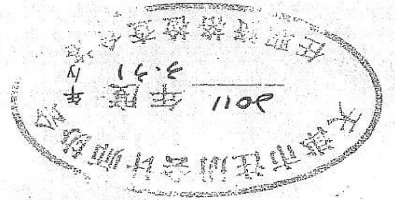 天津市注册会计师协会
2011 年度
3.31
任职资格检查合格